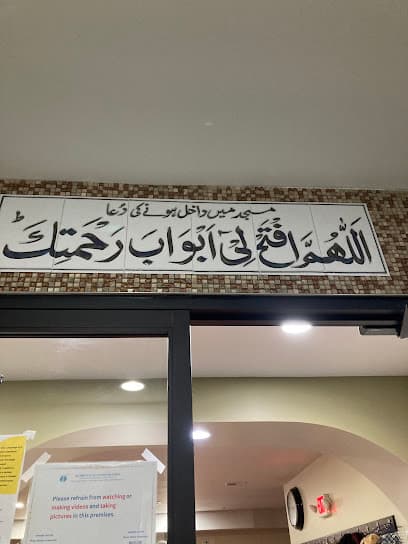 مسجد میں داخل ہونے کی دُعا
اَللّٰهُمَّ افْتَحْ لِیْ اَبْوَابَ رَحْمَتِكَ
Please refrain from watching or
making videos and taking
pictures in this premises.